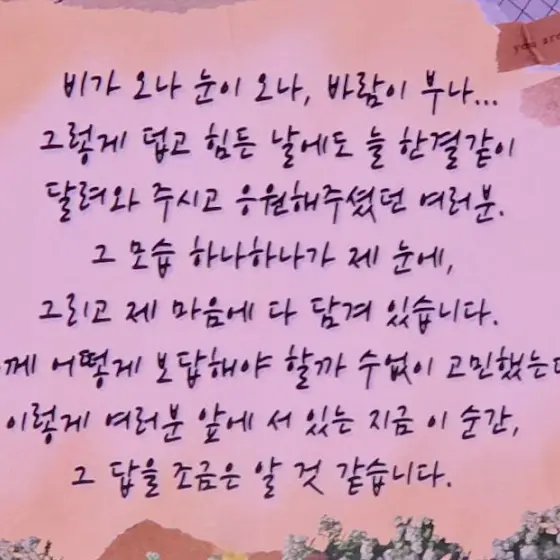 you are
비가 오나 눈이 오나, 바람이 부나...
그렇게 덥고 힘든 날에도 늘 한결같이
달려와 주시고 응원해주셨던 여러분.
그 모습 하나하나가 제 눈에,
그리고 제 마음에 다 담겨 있습니다.
어떻게 보답해야 할까 수없이 고민했는
이렇게 여러분 앞에 서 있는 지금 이 순간,
그 답을 조금은 알 것 같습니다.